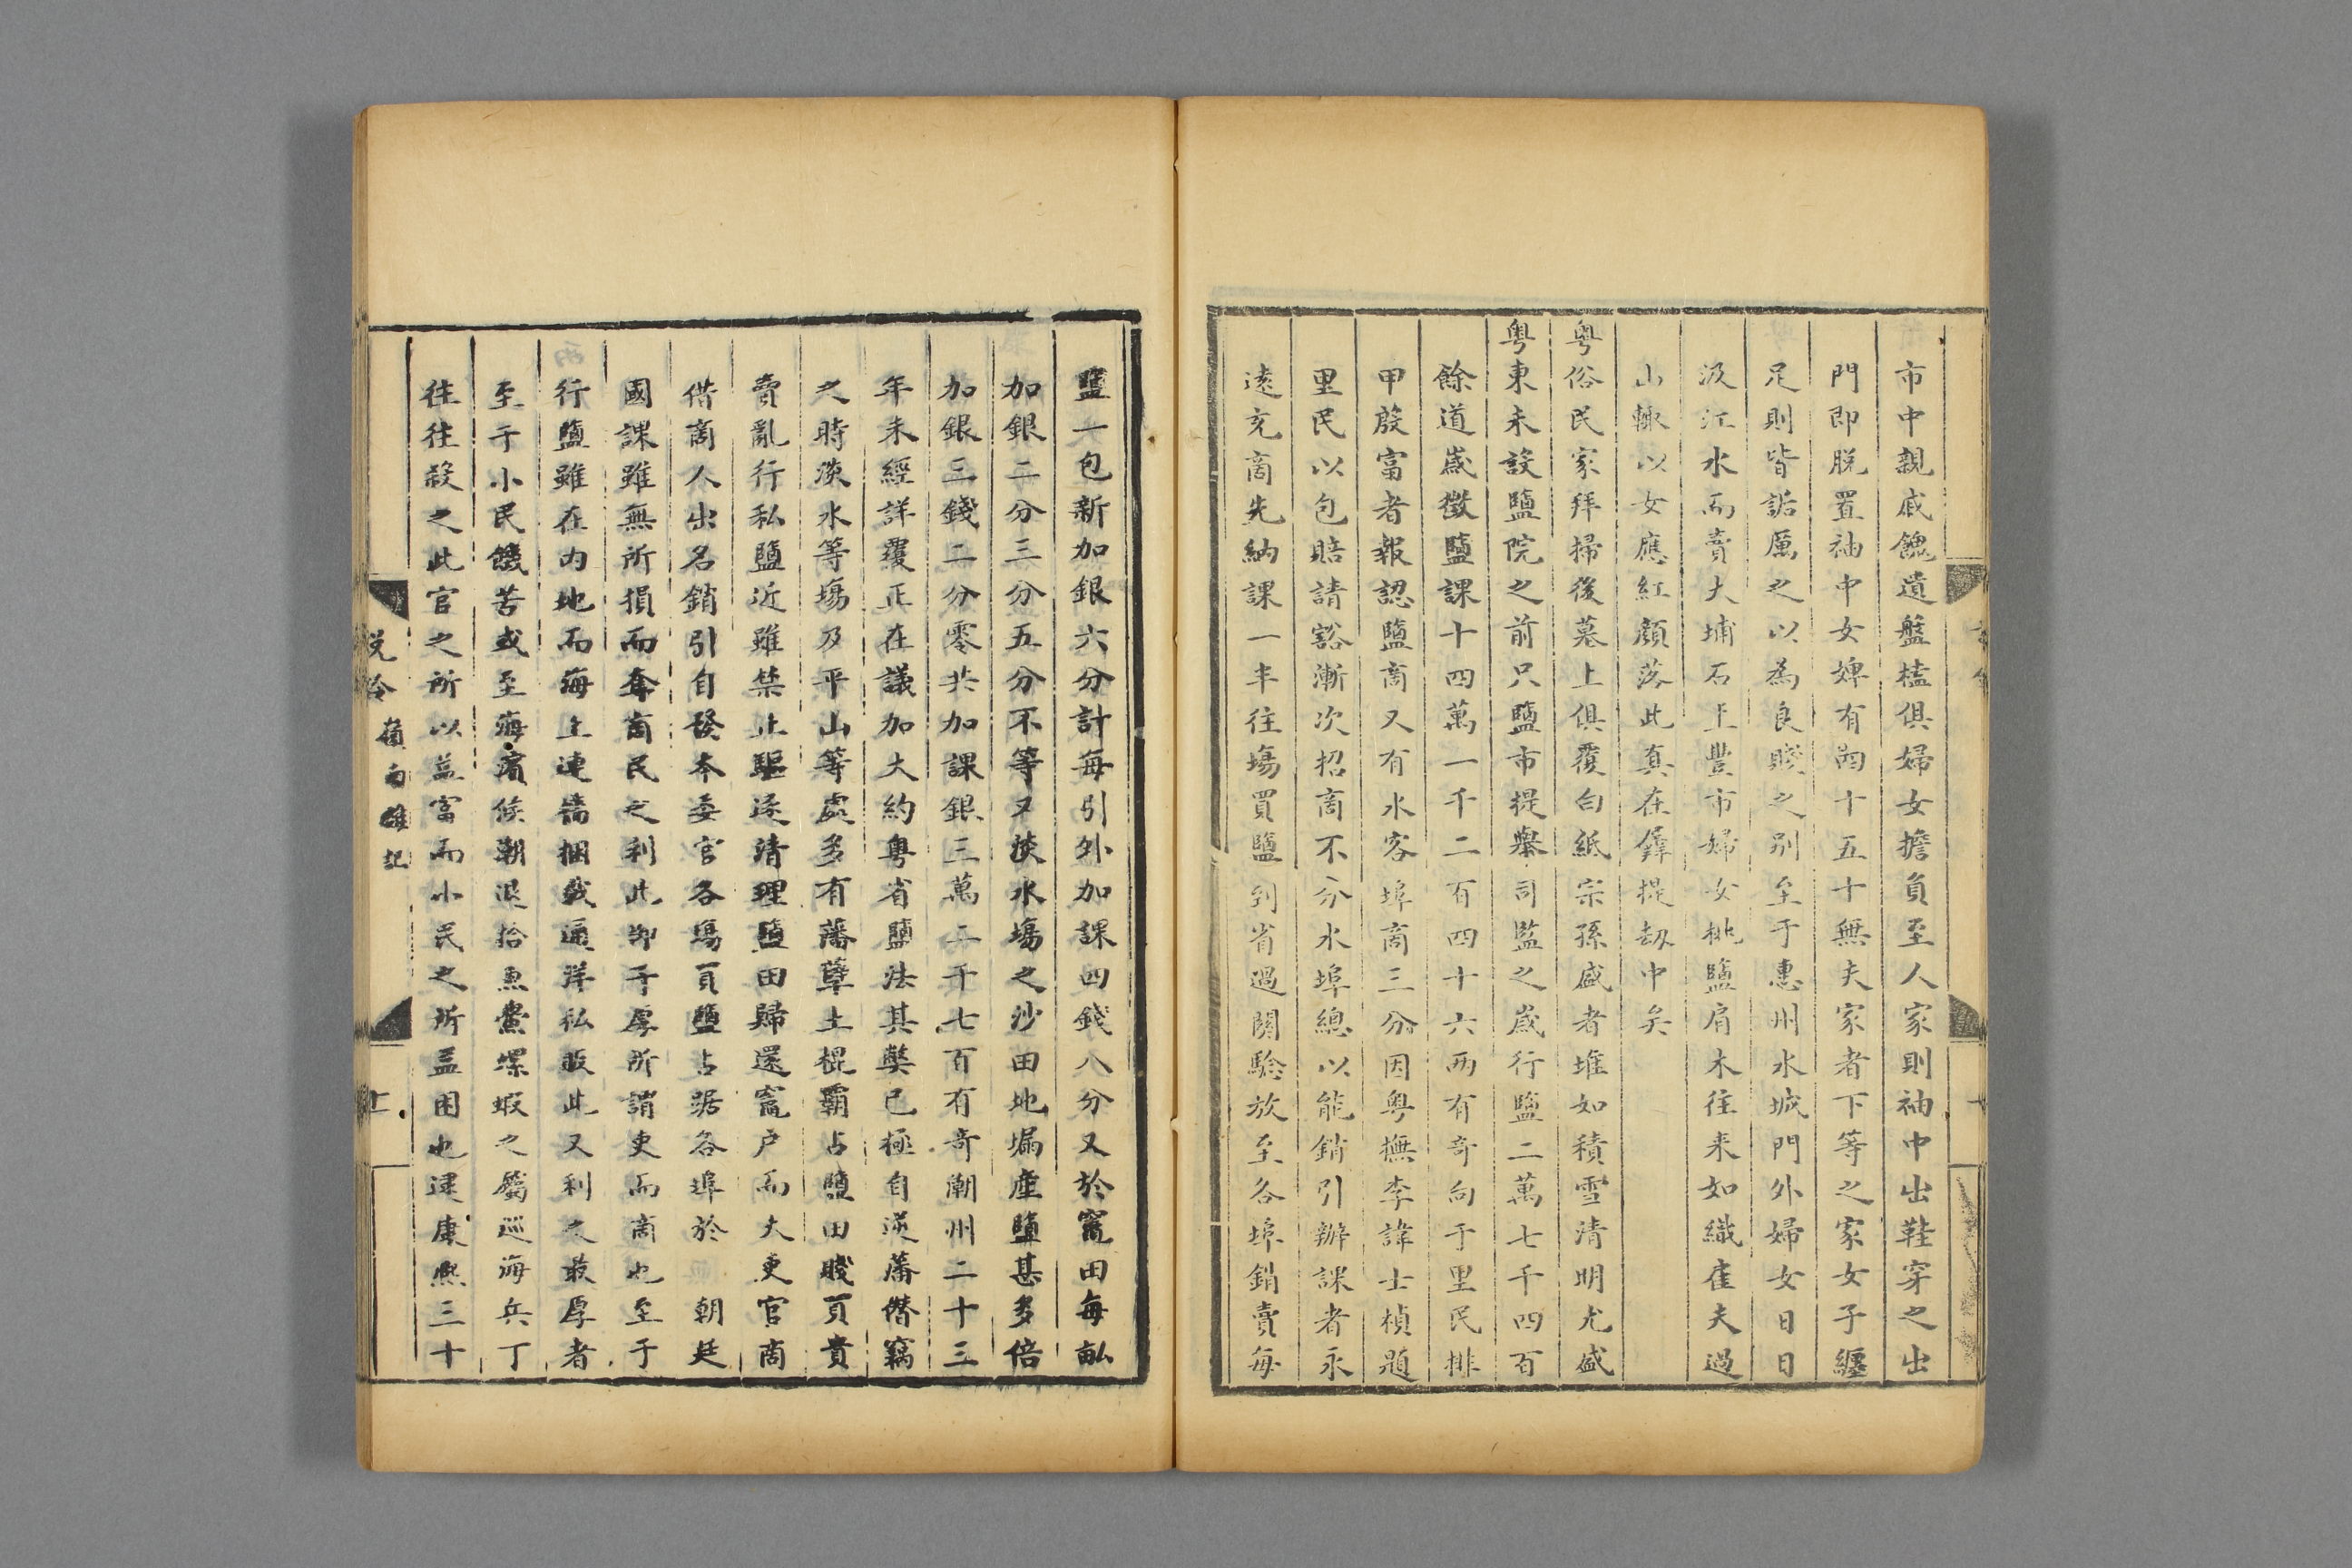 市中親戚餽遺盤榼俱婦女擔負至人家則袖中出鞋穿之出
門即脫置袖中女婢有四十五十無夫家者下等之家女子纏
足則皆詬厲之以為良賤之别至于惠州水城門外婦女日日
汲江水而賣大埔石上豐市婦女挑鹽肩木往來如織隹夫過
山輙以女應紅顔落此真在羼提刼中矣
粤俗民家拜掃後墓上俱覆白紙宗孫盛者堆如積雪清明尤盛
粤東未設鹽院之前只鹽市提舉司監之歲行鹽二萬七千四百
餘道歲徵鹽課十四萬一千二有四十六兩有奇向于里民排
甲殷富者報認鹽商又有水客埠商三分因粤撫李諱士楨題
里民以包賠請豁漸次招商不分水埠總以能銷引辦課者永
遠充商先納課一半往塲買鹽到省過關驗放至各埠銷賣每
鹽一包新加銀六分計每引外加課四錢八分又於竃田每畝
加銀二分三分五分不等又淡水塲之沙田地塥產鹽甚多倍
加銀三錢二分零共加課銀三萬二千七百有奇潮州二十三
年未經詳覆正在議加大約粤省鹽法其獘已極自逆藩僭竊
之時淡水等塲乃平山等處多有藩孽土棍霸占鹽田賤買貴
賣亂行私鹽近雖禁止驅逐清理鹽田歸還竃户而大吏官商
借商人出名銷引自發本委官各塲買鹽占踞各埠於 朝廷
國課雖無所損而奪商民之利此卸于厚所謂吏而商也至于
行鹽雖在内地而海上連檣捆載通洋私販此又利之最厚者
至于小民饑苦或至海濱候朝退拾魚鱟螺蝦之屬巡海兵丁
往往殺之此官之所以益富而小民之所益困也逮康熙三十
說鈴 嶺南雜記 十